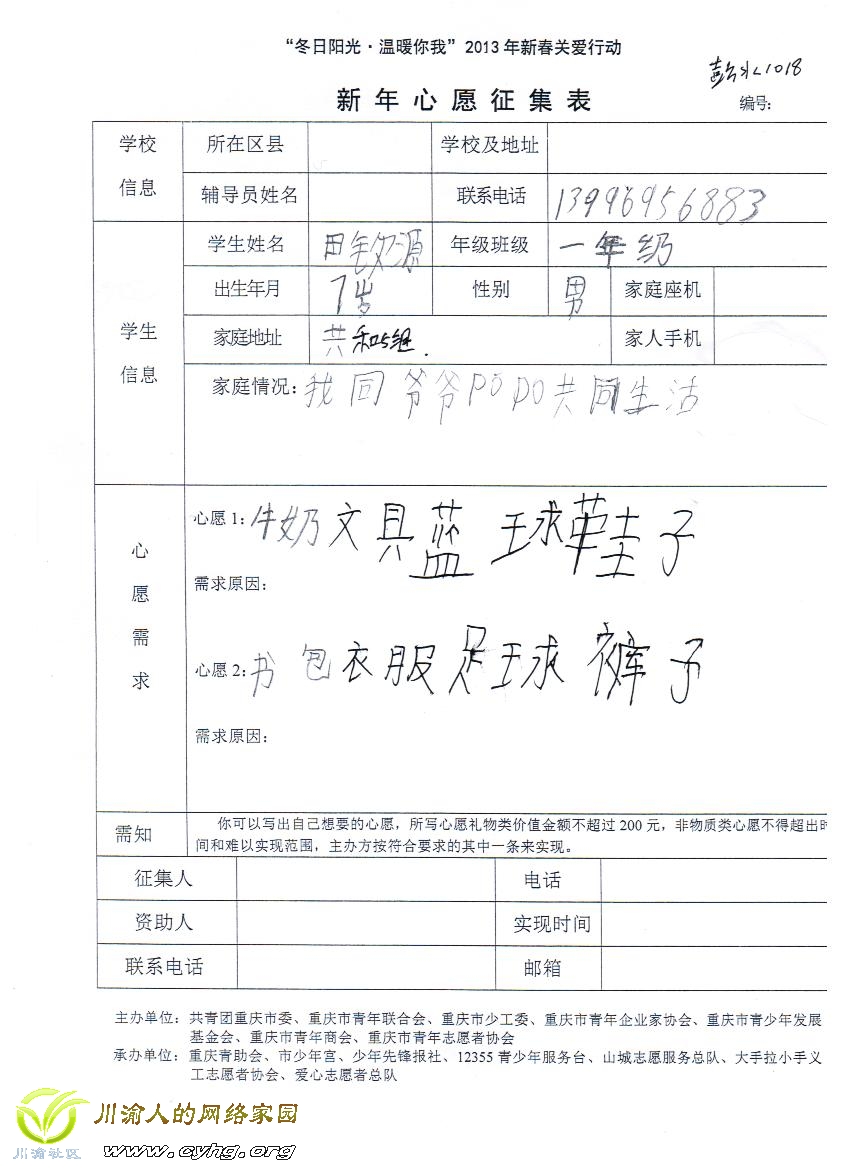 “冬日阳光·温暖你我”2013年新春关爱行动
彭水1018
新年心愿征集表
编号:
学校信息 所在区县 学校及地址
辅导员姓名 联系电话 13996956883
学生信息 学生姓名 田钦源 年级班级 一年级
出生年月 7岁 性别 男 家庭座机
家庭地址 共和5组. 家人手机
家庭情况: 我同爷爷popo共同生活
心愿需求
心愿1: 牛奶文具蓝球鞋子
需求原因:
心愿2: 书包衣服足球裤子
需求原因:
需知 你可以写出自己想要的心愿,所写心愿礼物类价值金额不超过200元,非物质类心愿不得超出时
间和难以实现范围,主办方按符合要求的其中一条来实现。
征集人 电话
资助人 实现时间
联系电话 邮箱
主办单位:共青团重庆市委、重庆市青年联合会、重庆市少工委、重庆市青年企业家协会、重庆市青少年发展
基金会、重庆市青年商会、重庆市青年志愿者协会
承办单位:重庆青助会、市少年宫、少年先锋报社、12355青少年服务台、山城志愿服务总队、大手拉小手义
工志愿者协会、爱心志愿者总队
川渝人的网络家园
川渝社区 www.cyhg.org